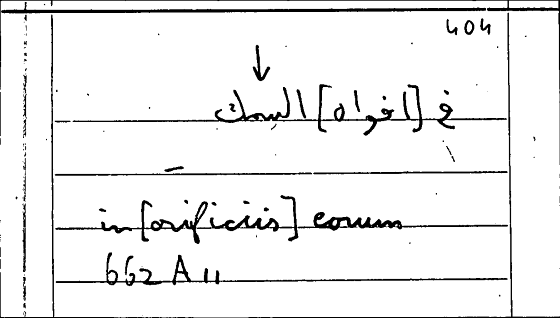 404
↓
في [افواه] السمك
in [orificiis] eorum
662 A 11